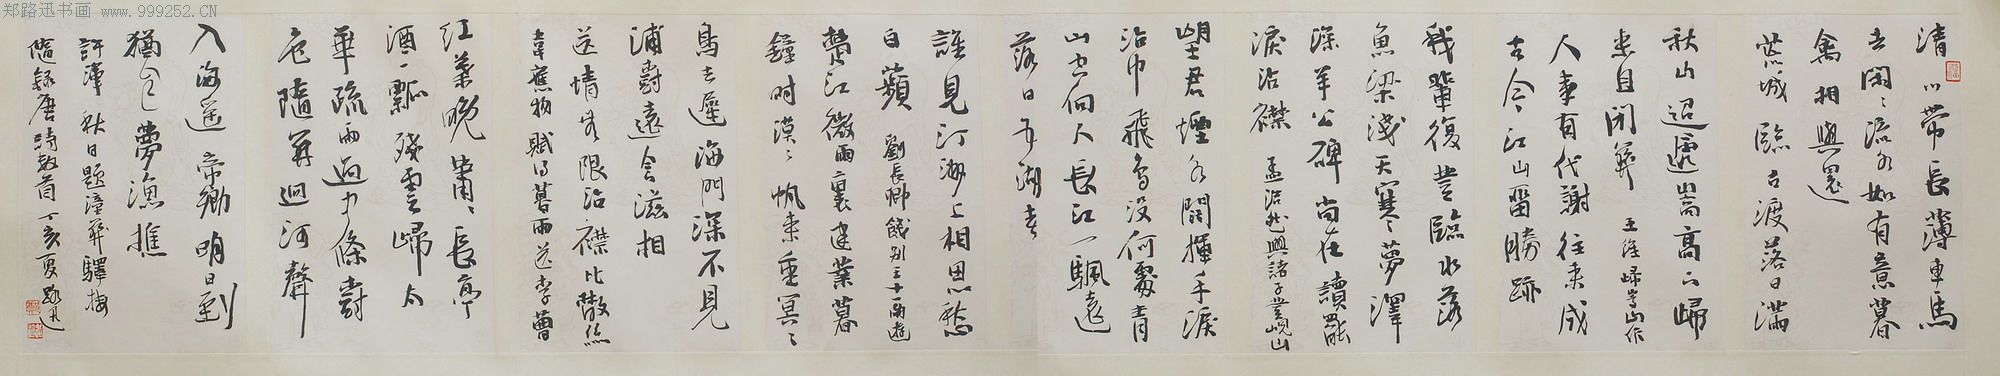 郑路迅书画 www.999252.CN
清川帶長薄車馬
去閑々流水如有意暮
禽相與還
荒城臨古渡落日滿
秋山迢遞嵩高下歸
来且閉關 王維歸嵩山作
人事有代謝往来成
古今江山留勝跡
我輩復登臨水落
魚梁淺天寒夢澤
深羊公碑尚在讀罷
淚沾襟 孟浩然與諸子登峴山
望君煙水闊揮手淚
沾巾飛鳥没何處青
山空向人長江一颿遠
落日五湖春
誰見汀洲上相思愁
白蘋 劉長卿餞別王十一南遊
楚江微雨裏建業暮
鐘時漠々帆来重冥々
鳥去遲海門深不見
浦樹遠含滋相
送情無限沾襟比散絲
韋應物賦得暮雨送李曹
紅葉晚蕭々長亭
酒一瓢殘雲歸太
華疏雨過中條樹
色隨關迥河聲
入海遥帝鄉明日到
猶自夢漁樵
許渾秋日題潼關驛樓
隨録唐詩数首丁亥夏路迅